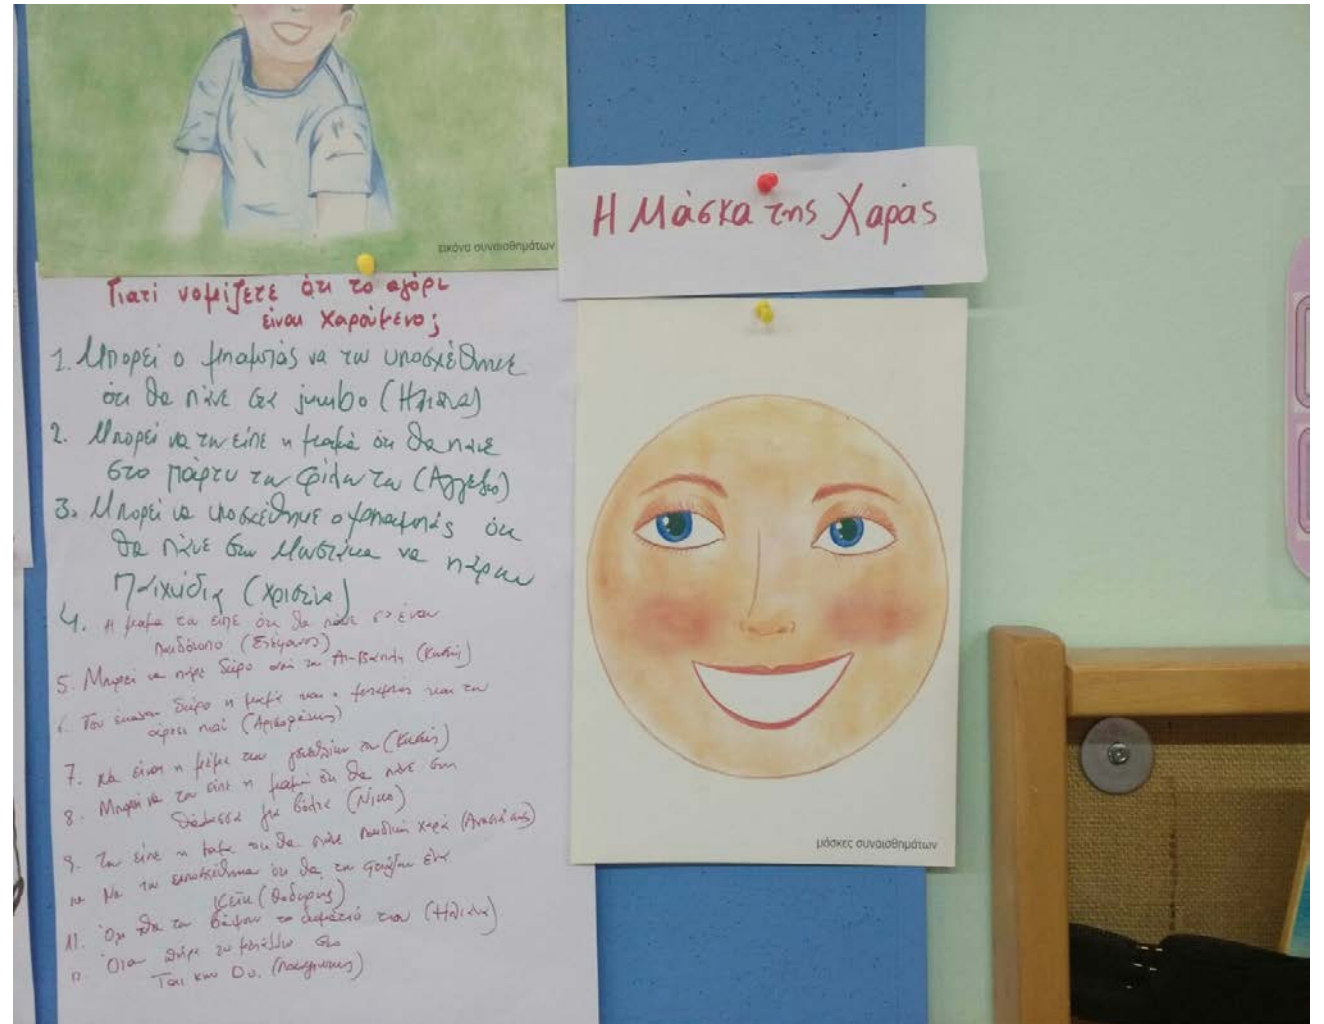 εικόνα συναισθημάτων
Η Μάσκα της Χαράς
Γιατί νομίζετε ότι το αγόρι
είναι χαρούμενο;
1. Μπορεί ο μπαμπάς να του υποσχέθηκε
ότι θα πάνε στα jumbo (Ηλιάνα)
2. Μπορεί να του είπε η μαμά ότι θα πάνε
στο πάρτυ του φίλου του (Άγγελος)
3. Μπορεί να υποσχέθηκε ο μπαμπάς ότι
θα πάνε στου Μουστάκα να πάρουν
παιχνίδια (Χριστίνα)
4. Η μαμά του είπε ότι θα πάνε σ' έναν
παιδότοπο (Στέφανος)
5. Μπορεί να πήρε δώρο από τον Άη-Βασίλη
6. Του έκαναν δώρο η μαμά και ο μπαμπάς και του
αρέσει πολύ
7. Να είναι η μέρα των γενεθλίων του
8. Μπορεί να του είπε η μαμά ότι θα πάνε στη
θάλασσα για βόλτα (Νίκο)
9. Του είπε η μαμά ότι θα πάνε παιδική χαρά
10. Να του υποσχέθηκαν ότι θα του φτιάξουν ένα
κέικ (Θοδωρής)
11. Ότι θα του βάψουν το δωμάτιό του (Ηλιάνα)
12. Όταν πήρε το μετάλλιο στο
Ταε κww Do.
μάσκες συναισθημάτων